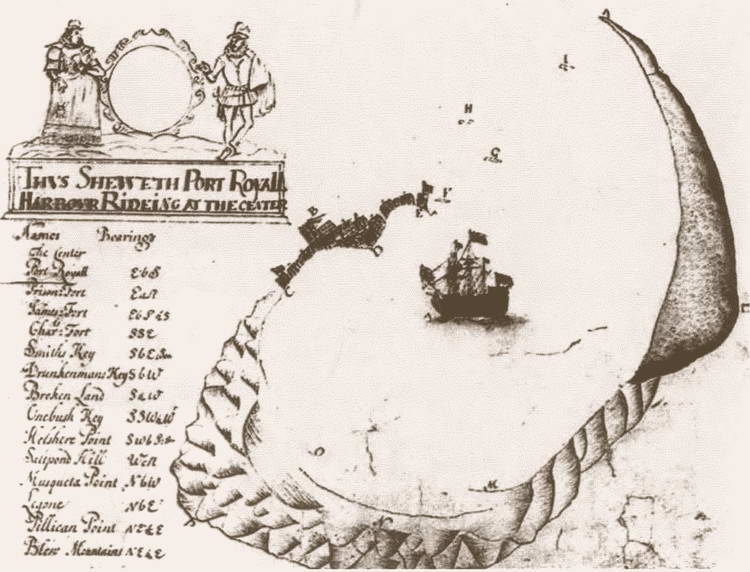 THVS SHEWETH PORT ROYALL
HARBOUR RIDEING AT THE CENTER
Names Bearings
The Center
Port Royall E b S
Prison: Fort East
James: Fort
Char: Fort SSE
Smiths Key S b E
Drunkenmans Key S b W
Broken Land S & W
Onebush Key
Helshere Point
Saltpond Hill West
Musqueta Point N b W
Legone N b E
Pillican Point N E & E
Blew Mountains N E & E
I
H
G
F
E
B
D
C
M
O
N
P